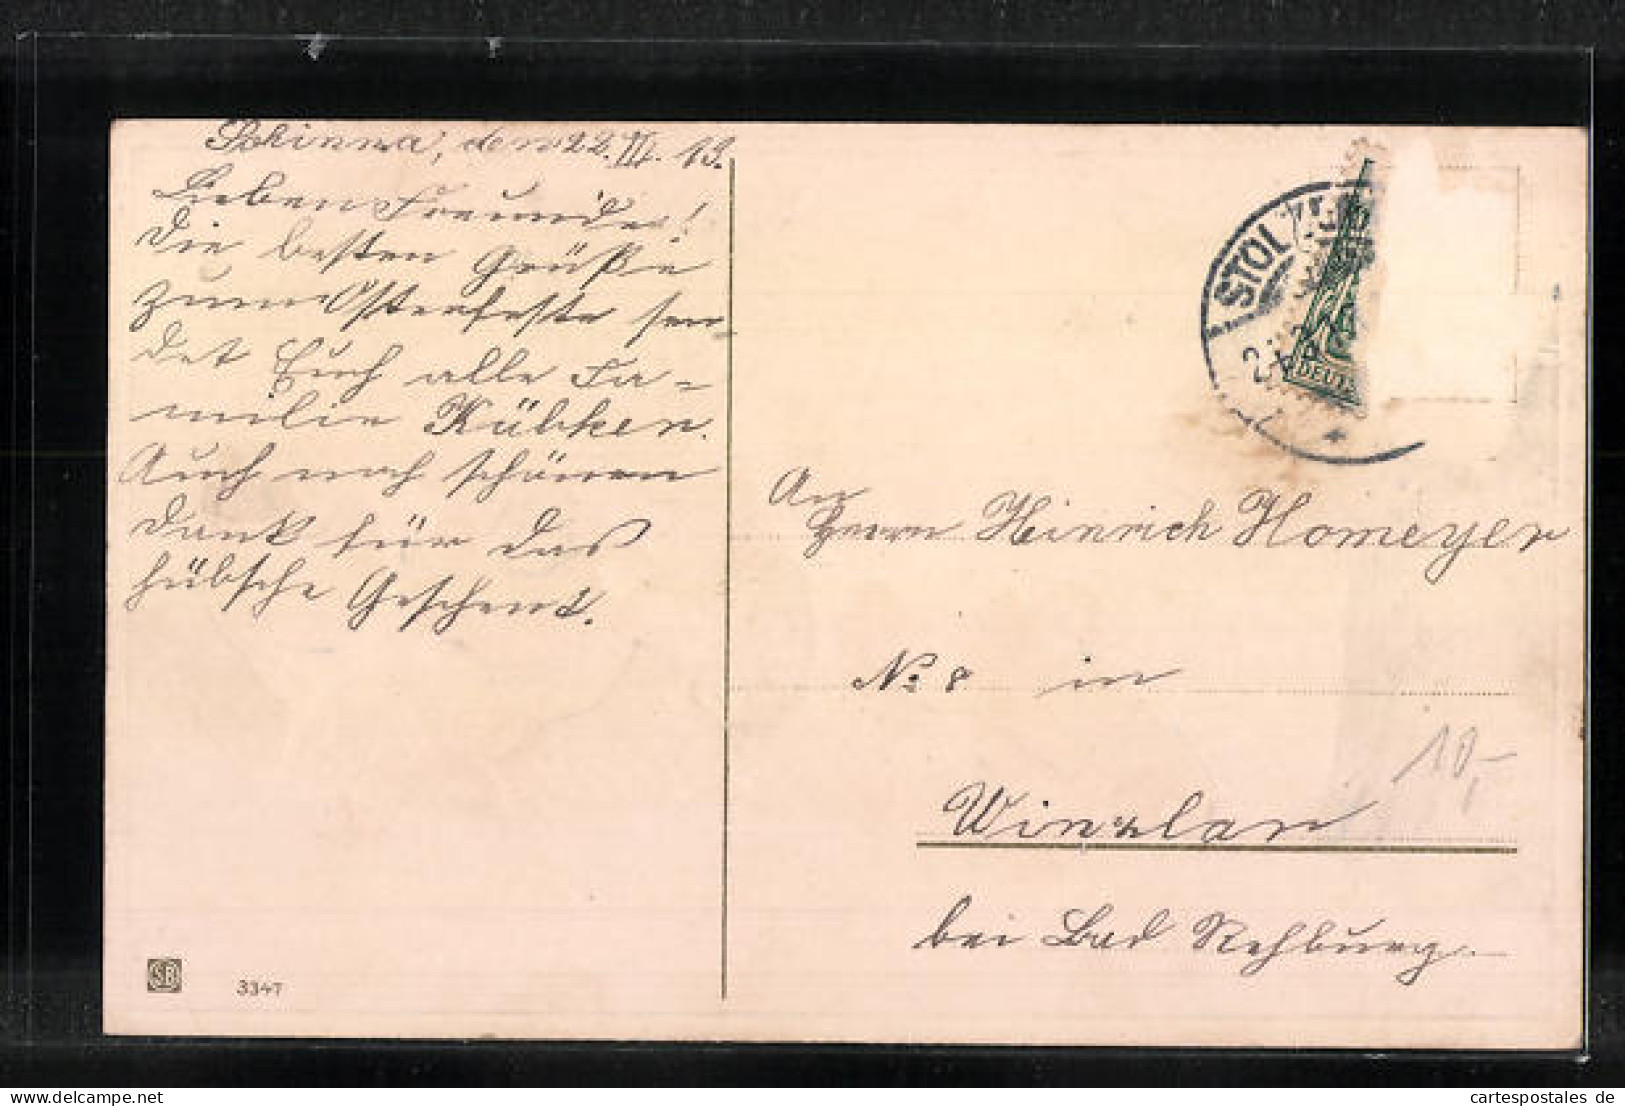 Schinna, den 22. III. 13.
Lieben Freunde!
Die besten Grüße
zum Osterfeste sen-
det Euch alle Fa-
milie Kübker.
Auch noch schönen
Dank für das
hübsche Geschenk.
STOLZE
DEUTS
An
Herrn Heinrich Homeyer
No: 8 in
Winzlar
bei Bad Rehburg.
10,-
SB
3347
www.cartespostales.de